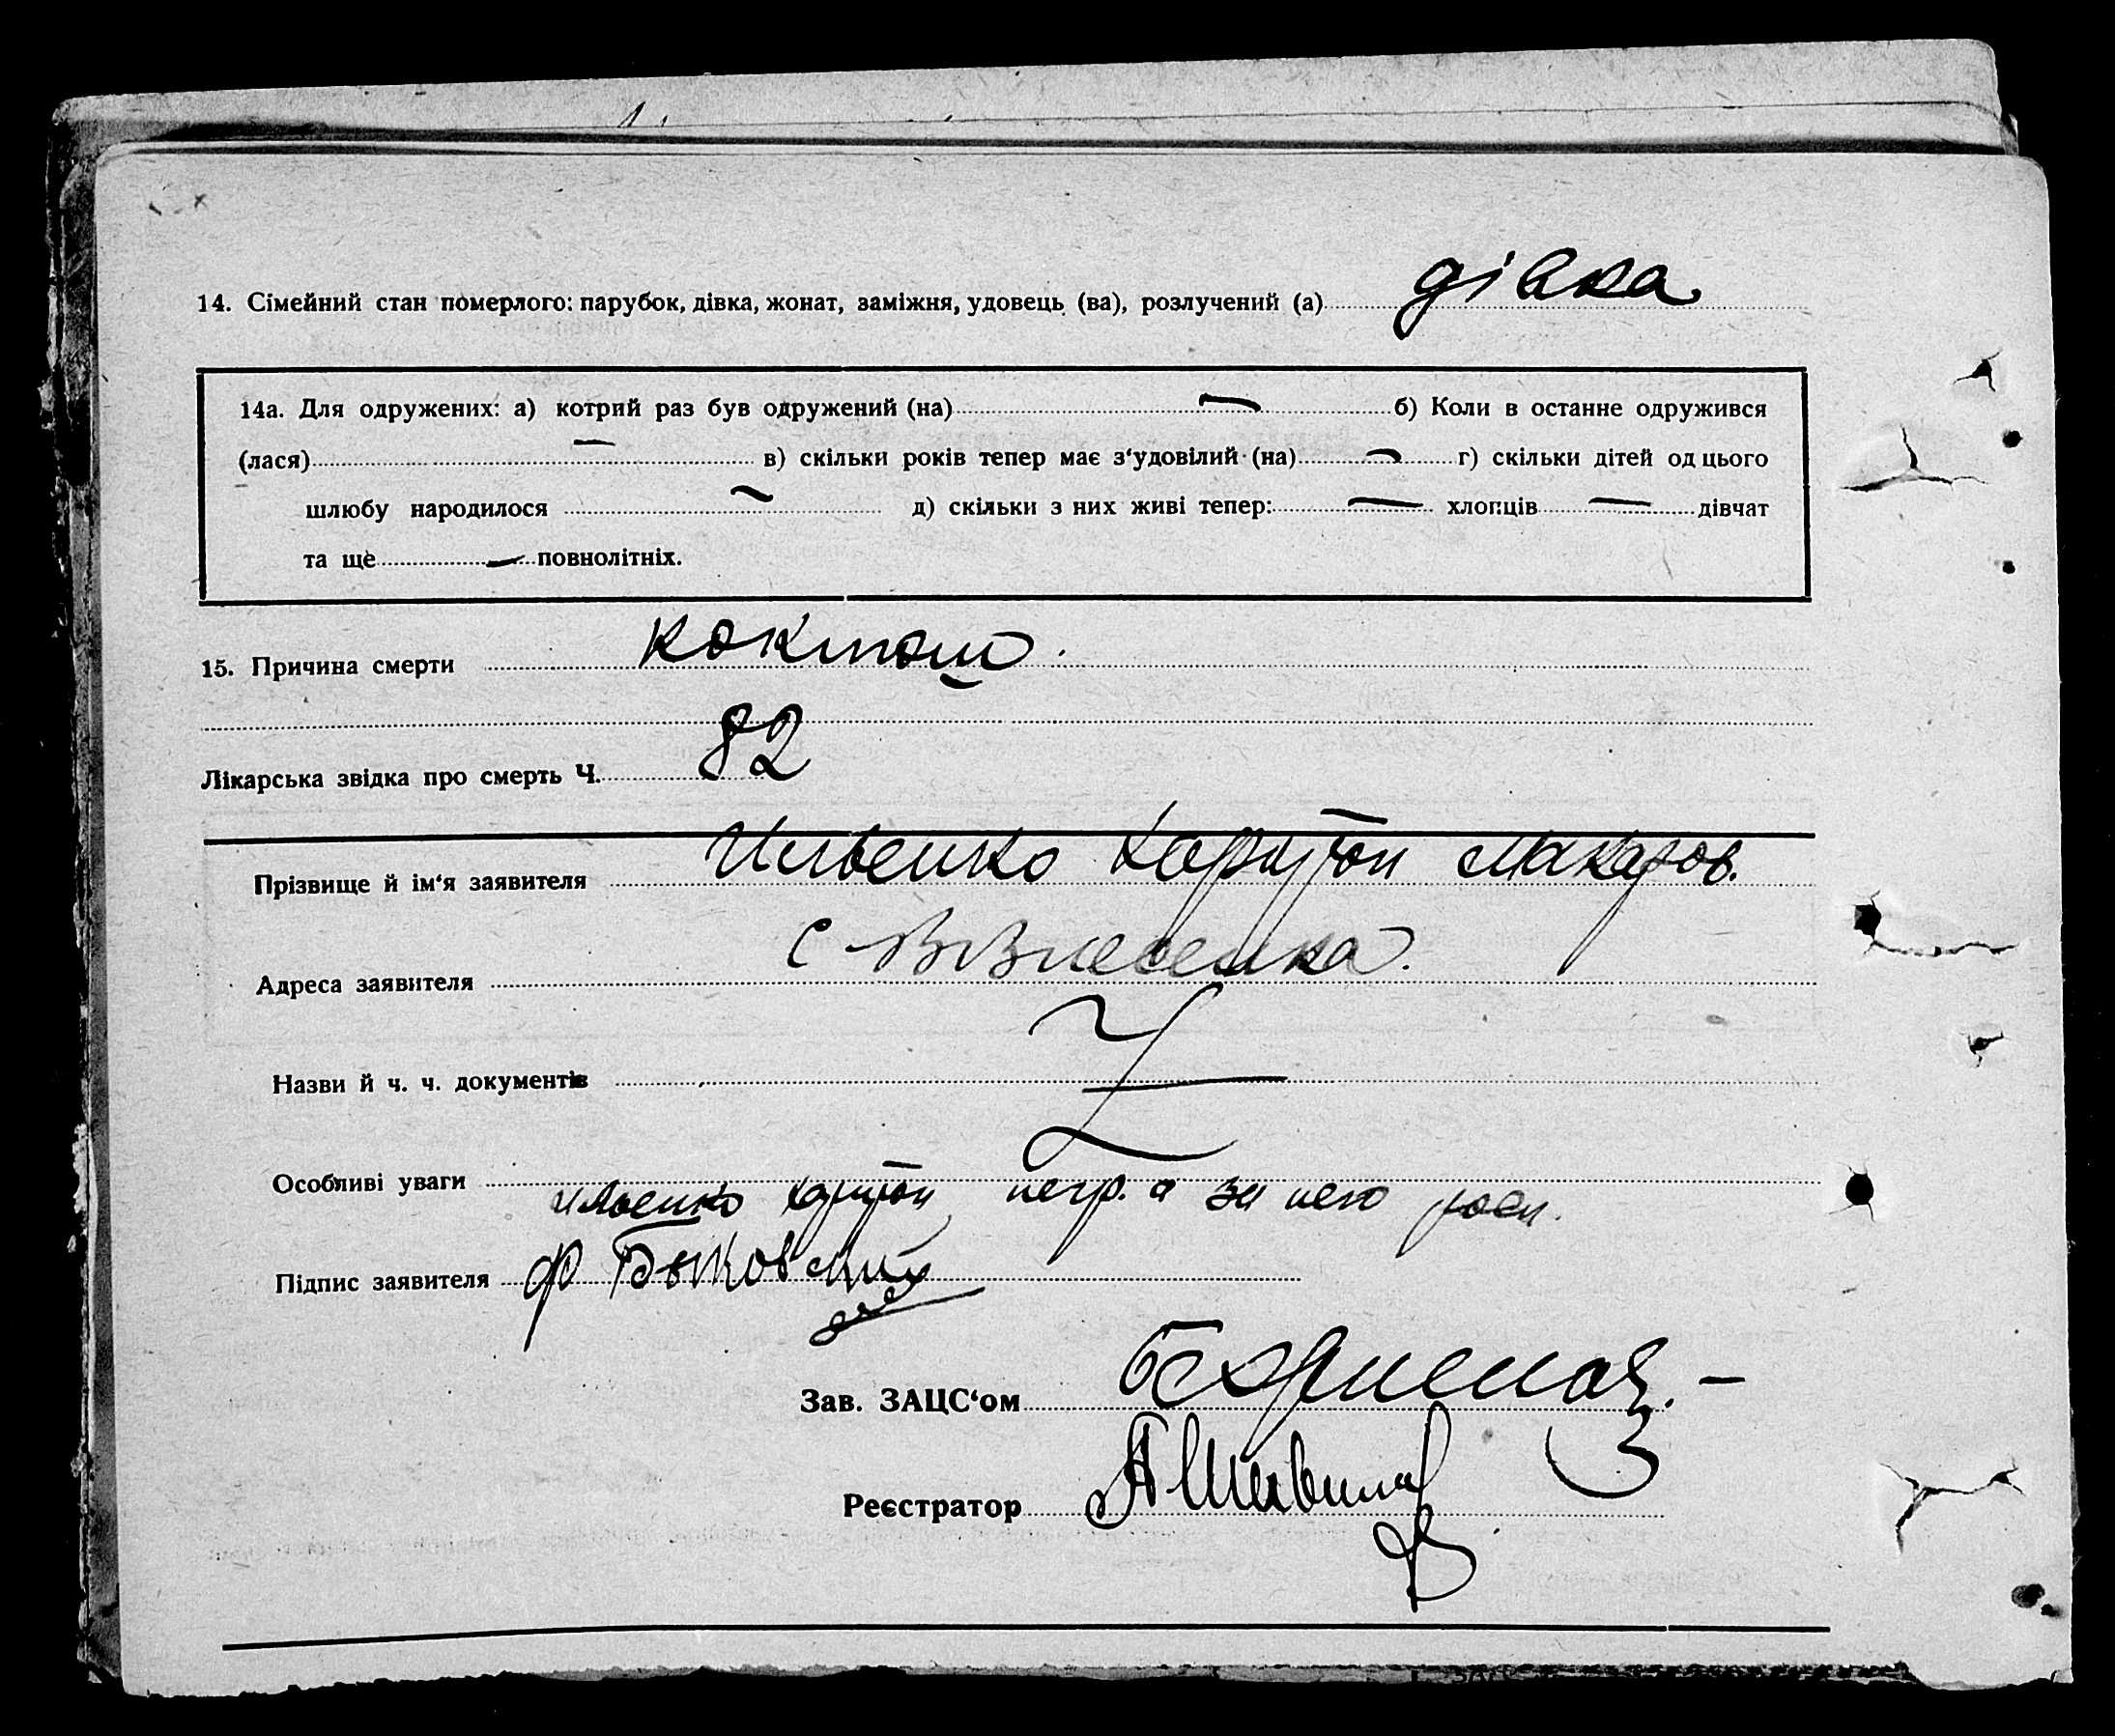 14. Сімейний стан померлого: парубок, дівка, жонат, заміжня, удовець (ва), розлучений (а) дівка
14а. Для одружених: а) котрий раз був одружений (на) — б) Коли в останне одружився
(лася) — в) скільки років тепер має з‘удовілий (на) — г) скільки дітей од цього
шлюбу народилося — д) скільки з них живі тепер: — хлопців — дівчат
та ще — повнолітніх.
15. Причина смерти коклюш.
Лікарська звідка про смерть Ч. 82
Прізвище й ім‘я заявителя Ильенко Харитон Макаров.
Адреса заявителя с Вознесенка.
Назви й ч. ч. документів
Особливі уваги
Ильенко Харитон негр. а за него росп.
Підпис заявителя Ф Быковский
Зав. ЗАЦС‘ом
Реєстратор